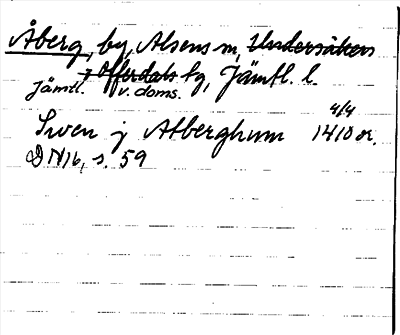 Åberg, by, Alsens sn, Undersåkers
, Offerdals tg, Jämtl. l.
Jämtl. v. doms.
4/4
Swen j Atberghum 1410 or.
DN 16, s. 59